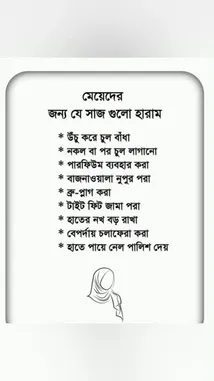 মেয়েদের
জন্য যে সাজ গুলো হারাম
* উঁচু করে চুল বাঁধা
* নকল বা পর চুল লাগানো
* পারফিউম ব্যবহার করা
* বাজনাওয়ালা নুপুর পরা
* ব্রু-প্লাগ করা
* টাইট ফিট জামা পরা
* হাতের নখ বড় রাখা
* বেপর্দায় চলাফেরা করা
* হাতে পায়ে নেল পালিশ দেয়